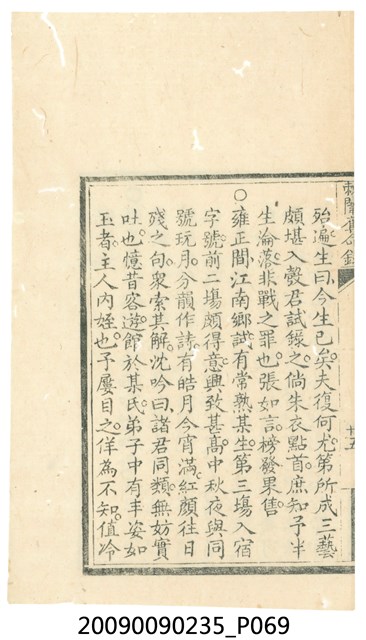 殆遍生曰今生已矣夫復何尤第所成三藝
頗堪入彀君試錄之倘朱衣點首庶知予半
生淪落非戰之罪也張如言榜發果售
○雍正間江南鄉試有常熟某生第三場入宿
字號前二場頗得意興致甚高中秋夜與同
號玩月分韻作詩有皓月今宵滿紅顏往日
殘之句衆索其解沈吟曰諸君同類無妨實
吐也憶昔客遊館於某氏弟子中有丰姿如
玉者主人內姪也予屢目之佯為不知值冷
十五
20090090235_P069